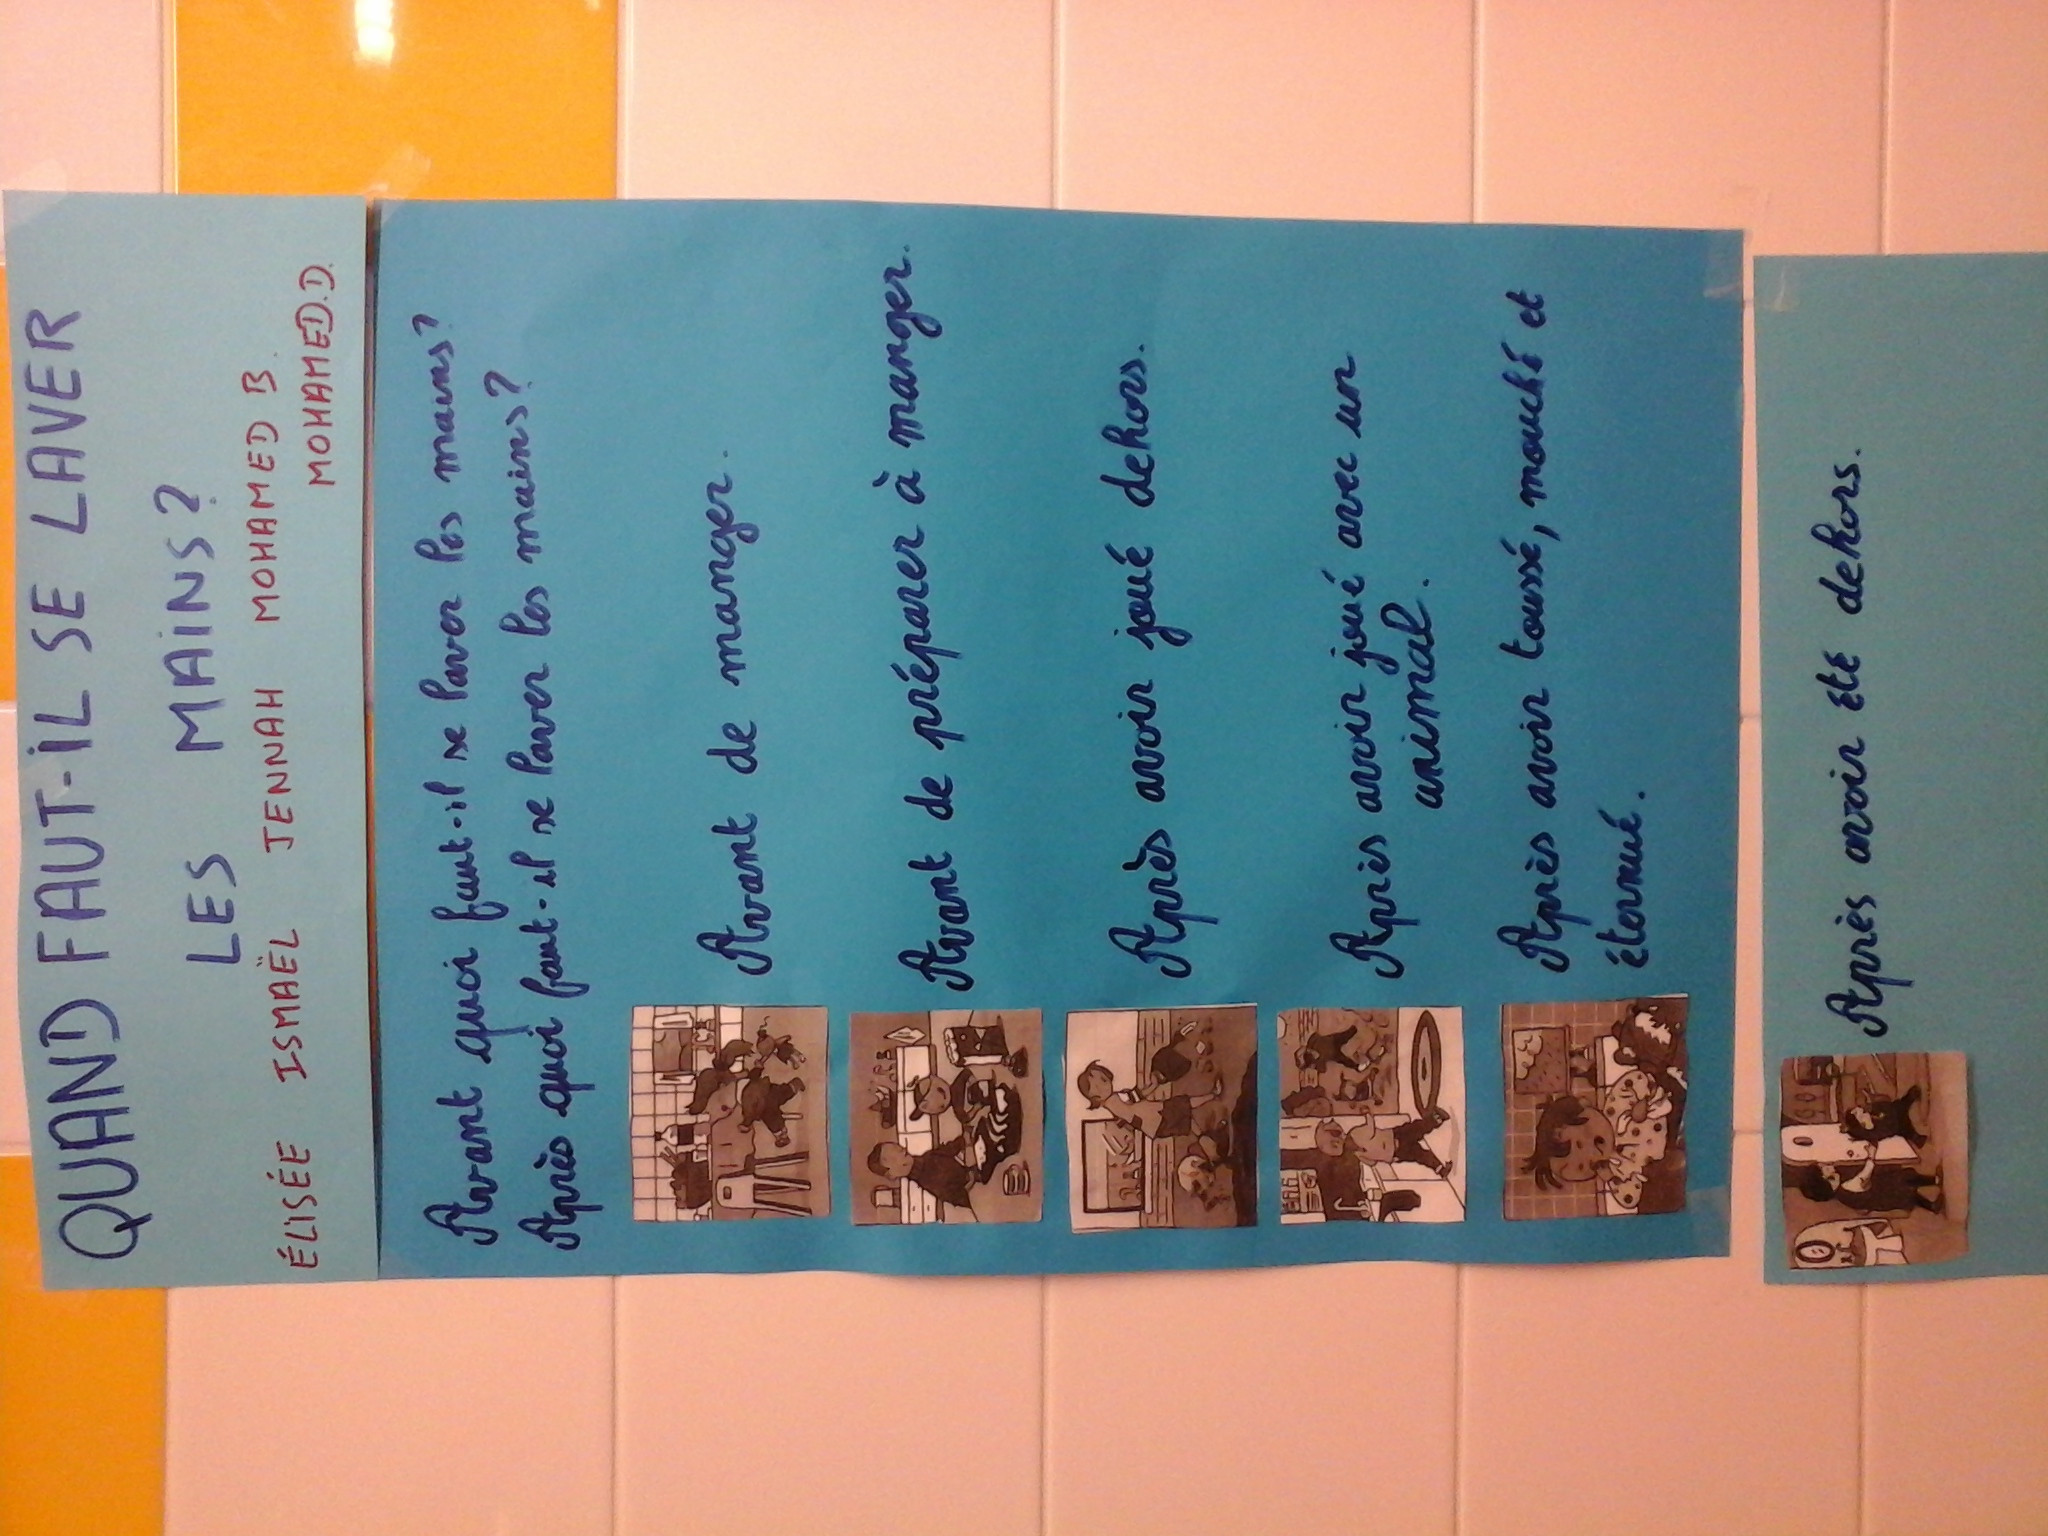 QUAND FAUT-IL SE LAVER
LES MAINS?
ÉLISÉE ISMAËL JENNAH MOHAMED B.
MOHAMED.D.
Avant quoi faut-il se laver les mains?
Après quoi faut-il se laver les mains?
Avant de manger.
Avant de préparer à manger.
Après avoir joué dehors.
Après avoir joué avec un
animal.
Après avoir toussé, mouché et
éternué.
Après avoir été dehors.